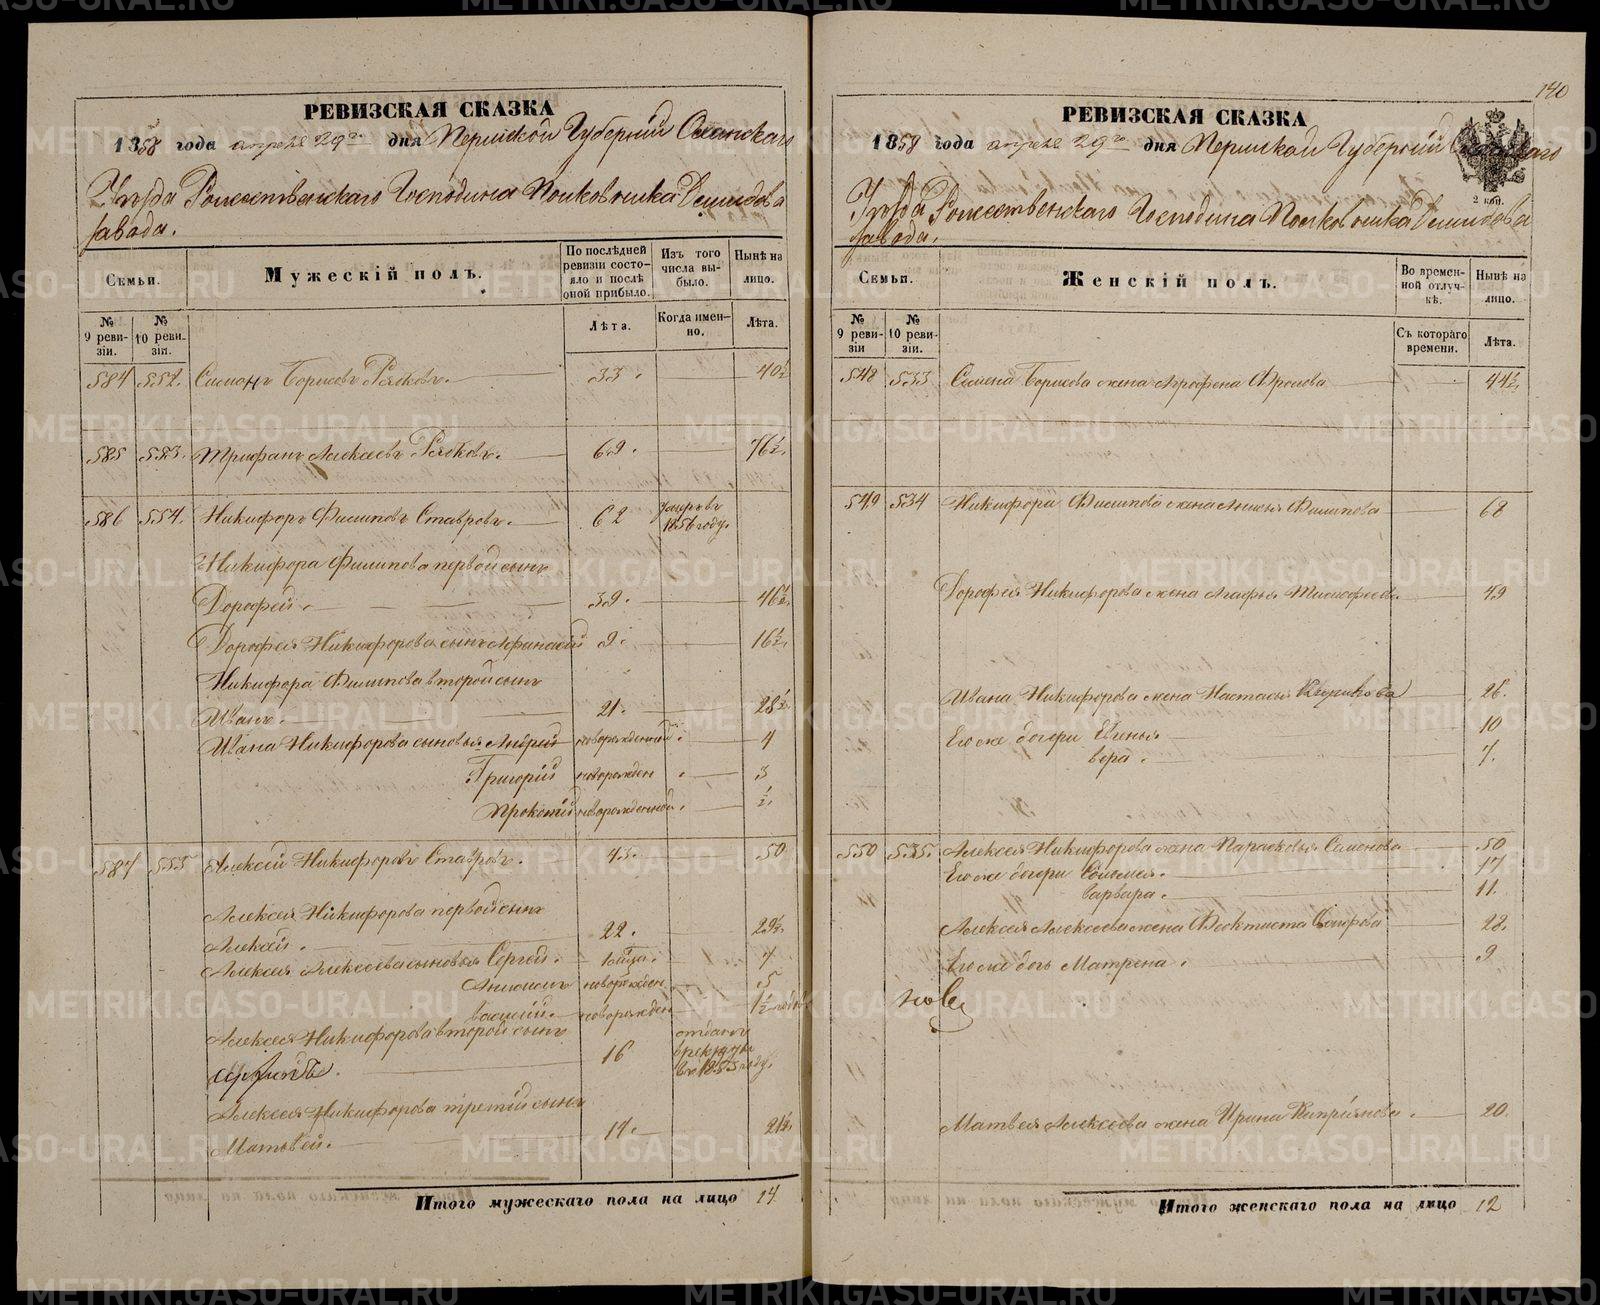 140
РЕВИЗСКАЯ СКАЗКА
1858 года апреля 29го дня Пермской Губернiи Оханскаго
Уѣзда Рожественскаго Господина Полковника Демидова
завода.
Семьи.
Мужескiй полъ.
По послѣдней ревизiи состояло и послѣ оной прибыло.
Изъ того числа выбыло.
Нынѣ на лицо.
№ 9 ревизiи.
№ 10 ревизiи.
Лѣта.
Когда именно.
Лѣта.
584 552. Симонъ Борисовъ Рябковъ. 33. 40½
585 553. Трифанъ Алексеевъ Рябковъ. 69. 76½
586 554. Никифоръ Филиповъ Ставровъ. 62 умеръ въ 1856 году.
Никифора Филипова первой сынъ
Дорофей. 39. 46½
Дорофея Никифорова сынъ Афанасiй 9. 16½
Никифора Филипова второй сынъ
Иванъ. 21. 28½
Ивана Никифорова сыновья Андрей новорожденной. 4
Григорiй новорожден 3
Прокопiй новорожденной. ½
587 555 Алексей Никифоровъ Ставровъ. 43. 50
Алексея Никифорова первой сынъ
Алексей. 22. 29½
Алексея Алексеева сыновья Сергей. 7
новорожден 5
Василiй. новорожден 1½
Алексея Никифорова второй сынъ
16 отданъ в рекруты в 1853 году.
Алексея Никифорова третiй сынъ
Матвей. 14. 21½
Итого мужескаго пола на лицо 14
РЕВИЗСКАЯ СКАЗКА
1858 года апреля 29го дня Пермской Губернiи Оханскаго
2 коп.
Уѣзда Рожественскаго Господина Полковника Демидова
завода.
Семьи.
Женскiй полъ.
Во временной отлучкѣ.
Нынѣ на лицо.
№ 9 ревизiи
№ 10 ревизiи.
Съ котораго времени.
Лѣта.
548 533 Симона Борисова жена Агрофена Фролова 44½
549 534 Никифора Филипова жена Анисья Филипова 68
Дорофея Никифорова жена Агафья Тимофеева. 49
Ивана Никифорова жена Настасья 26.
Ево же дочери 10
Вера. 7.
550 535. Алексея Никифорова жена Парасковья Семенова 50
Ево же дочери 17
Варвара. 11.
Алексея Алексеева жена Феоктиста 28.
Ево же дочь Матрена. 9
Матвея Алексеева жена Ирина Киприянова. 20.
Итого женскаго пола на лицо 12
METRIKI.GASO-URAL.RU